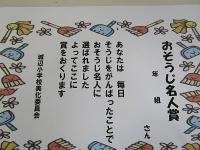 おそうじ名人賞
年 組
さん
あなたは 毎日
そうじをがんばったことで
おそうじ名人に
選ばれました
よってここに
賞をおくります
渡辺小学校美化委員会